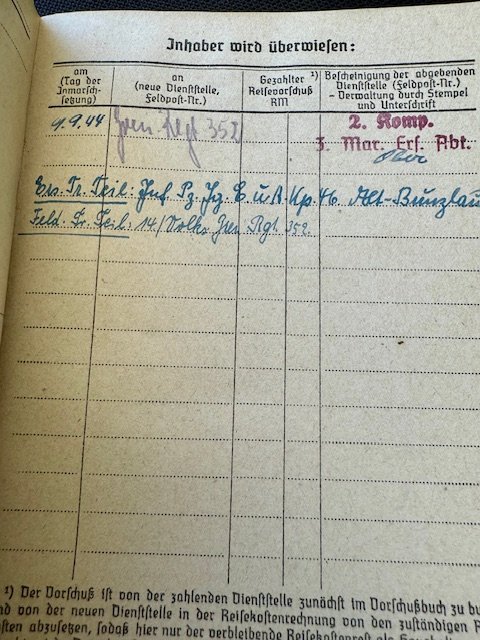 Inhaber wird überwiesen:
am
(Tag der
Inmarsch-
setzung)
an
(neue Dienststelle,
Feldpost-Nr.)
Gezahlter ¹)
Reisevorschuß
RM
Bescheinigung der abgebenden
Dienststelle (Feldpost-Nr.)
- Verwaltung durch Stempel
und Unterschrift
9.9.44 Gren Regt 352
2. Komp.
3. Mar. Ers. Abt.
Ers. Tr. Teil: Inf. Pz. Jg. E. u. A. Kp. 46 Alt-Bunzlau
Feld. Tr. Teil. 14/Volks Gren Rgt. 352.
¹) Der Vorschuß ist von der zahlenden Dienststelle zunächst im Vorschußbuch zu bu
nd von der neuen Dienststelle in der Reisekostenrechnung von den zuständigen R
sten abzusetzen, sodaß hier nur der verbleibende